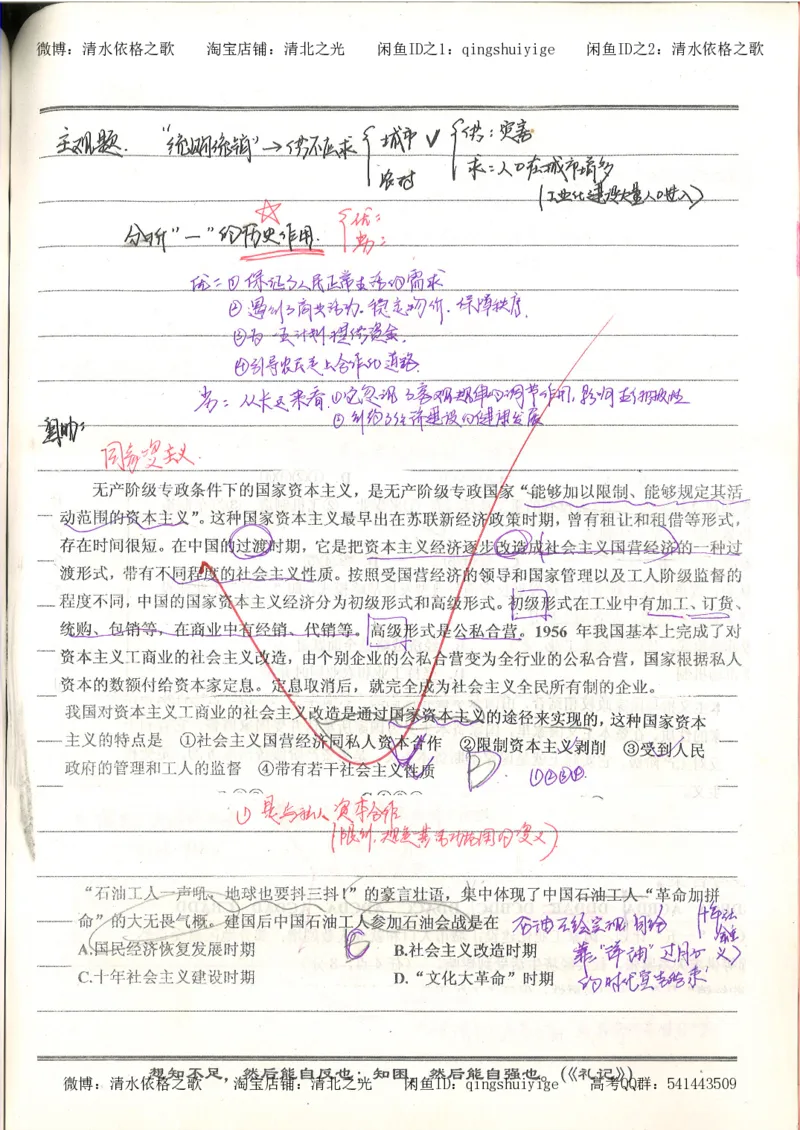 微博：清水依格之歌 淘宝店铺：清北之光 闲鱼ID之1：qingshuiyige 闲鱼ID之2：清水依格之歌
主观题. “统购统销”→供不应求 城市 ✓ 供：灾害
农村 求：人口在城市增多
(工业化建设大量人口进入)
分析“—”的历史作用. 优：
劣：
优：① 保证了人民正常生活的需求
② 遏制了商业活动. 稳定物价. 保障秩序.
③ 为一五计划提供资金.
④ 引导农民走上合作化道路.
劣：从长远来看. ①它忽视了客观规律的调节作用, 影响生产积极性
② 制约了经济建设的健康发展
国家资本主义.
无产阶级专政条件下的国家资本主义，是无产阶级专政国家“能够加以限制、能够规定其活
动范围的资本主义”。这种国家资本主义最早出在苏联新经济政策时期，曾有租让和租借等形式，
存在时间很短。在中国的过渡时期，它是把资本主义经济逐步改造成社会主义国营经济的一种过
渡形式，带有不同程度的社会主义性质。按照受国营经济的领导和国家管理以及工人阶级监督的
程度不同，中国的国家资本主义经济分为初级形式和高级形式。初级形式在工业中有加工、订货、
统购、包销等，在商业中有经销、代销等。高级形式是公私合营。1956 年我国基本上完成了对
资本主义工商业的社会主义改造，由个别企业的公私合营变为全行业的公私合营，国家根据私人
资本的数额付给资本家定息。定息取消后，就完全成为社会主义全民所有制的企业。
我国对资本主义工商业的社会主义改造是通过国家资本主义的途径来实现的，这种国家资本
主义的特点是 ①社会主义国营经济同私人资本合作 ②限制资本主义剥削 ③受到人民
政府的管理和工人的监督 ④带有若干社会主义性质 D. ①②③④.
① 是与私人资本合作
(限制, 规定其活动范围的资义)
“石油工人一声吼，地球也要抖三抖！”的豪言壮语，集中体现了中国石油工人“革命加拼
命”的大无畏气概，建国后中国石油工人参加石油会战是在 石油已经实现自给 十年社会主义
A.国民经济恢复发展时期 B.社会主义改造时期 C 靠“洋油”过日子
C.十年社会主义建设时期 D.“文化大革命”时期 的时代宣告结束
想知不足，然后能自反也；知困，然后能自强也。(《礼记》)
微博：清水依格之歌 淘宝店铺：清北之光 闲鱼ID：qingshuiyige 高考QQ群：541443509